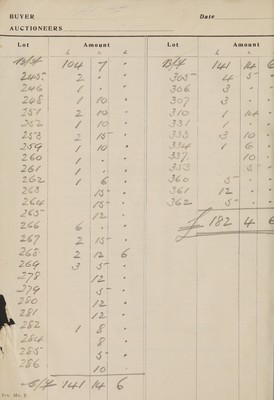 BUYER Date
AUCTIONEERS
Lot Amount Lot Amount
£ s. d. £ s. d.
B/f 104 7 •
245 2 • •
246 1 • •
248 1 10 •
251 2 10 •
252 1 10 •
253 2 15 •
259 1 10 •
260 1 • •
261 1 • •
262 1 6 •
263 15 •
264 15 •
265 12 •
266 6 • •
267 2 15 •
268 2 12 6
269 3 5 •
278 12 •
279 5 •
280 12 •
281 12 •
282 1 8 •
284 8 •
285 5 •
286 10 •
C/f 141 14 6
B/f 141 14 6
305 4 5 •
306 3 • •
307 3 • •
310 1 14 •
331 1 • •
333 3 10 •
334 1 6 •
337 10 •
353 5 •
360 5 • •
361 12 • •
362 5 • •
£ 182 4 6